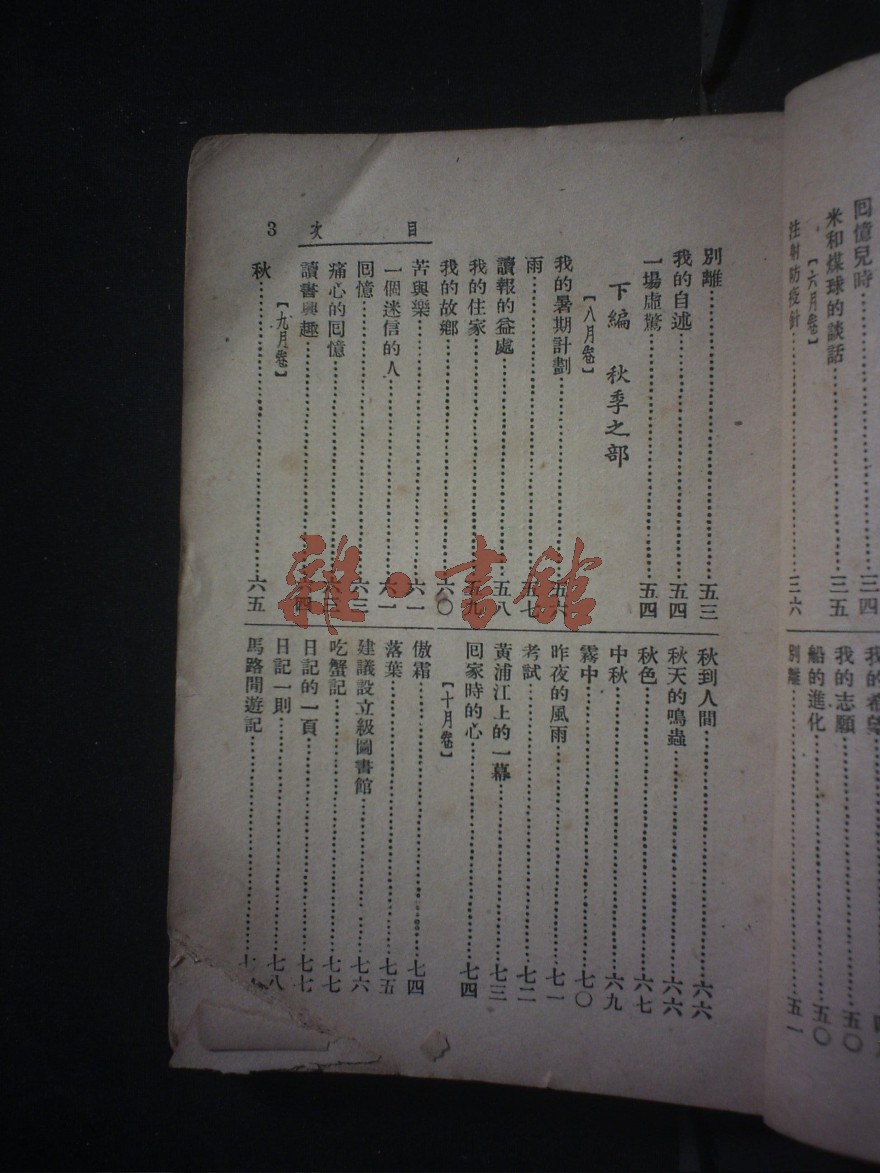 囘憶兒時……三四
米和煤球的談話……三五
【六月卷】
注射防疫針……三六
我的希望……
我的志願……五〇
船的進化……五〇
別離……五一
目次 3
別離……五三
我的自述……五四
一場虛驚……五四
下編 秋季之部
【八月卷】
我的暑期計劃……五六
雨……五七
讀報的益處……五八
我的住家……五九
我的故鄉……六〇
苦與樂……六一
一個迷信的人……六一
囘憶……六三
痛心的囘憶……六三
讀書興趣……六四
【九月卷】
秋……六五
秋到人間……六六
秋天的鳴蟲……六六
秋色……六七
中秋……六九
霧中……七〇
昨夜的風雨……七一
考試……七二
黃浦江上的一幕……七三
囘家時的心……七四
【十月卷】
傲霜……七四
落葉……七五
建議設立級圖書館……七六
吃蟹記……七七
日記的一頁……七七
日記一則……七八
馬路閒遊記……
雜·書館